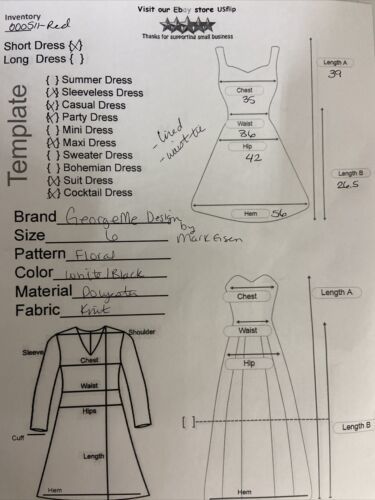 Inventory
000511-Red
Visit our Ebay store USflip
Thanks for supporting small business
Short Dress {X}
Long Dress { }
Template
{ } Summer Dress
{X} Sleeveless Dress
{X} Casual Dress
{X} Party Dress
{ } Mini Dress
{X} Maxi Dress
{ } Sweater Dress
{ } Bohemian Dress
{X} Suit Dress
{X} Cocktail Dress
- lined
- waist tie
Chest
35
Waist
36
Hip
42
Hem 56
Length A
39
Length B
26.5
Brand GeorgeMe Design
by
Mark Eisen
Size 6
Pattern Floral
Color White/Black
Material
Fabric Knit
Sleeve
Shoulder
Chest
Waist
Hips
Cuff
Length
Hem
Chest
Waist
Hip
[ ]
Hem
Length A
Length B